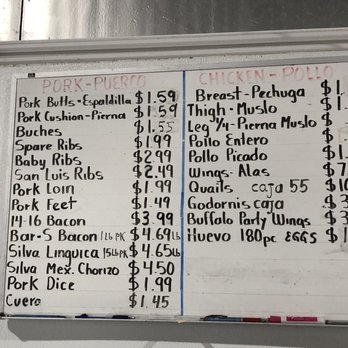 PORK-PUERCO
Pork Butts-Espaldilla $1.59
Pork Cushion-Pierna $1.59
Buches $1.55
Spare Ribs $1.99
Baby Ribs $2.99
San Luis Ribs $2.49
Pork Loin $1.99
Pork Feet $1.49
14-16 Bacon $3.99
Bar-S Bacon 1LB PK $4.69lb
Silva Linguica 15LB PK $4.65lb
Silva Mex. Chorizo $4.50
Pork Dice $1.99
Cuero $1.45
CHICKEN-POLLO
Breast-Pechuga $1.
Thigh-Muslo $
Leg 1/4-Pierna Muslo $
Pollo Entero $
Pollo Picado $1.
Wings-Alas $7
Quails caja 55 $10
Godornis caja $
Buffalo Party Wings $3
Huevo 180pc EGGS $1